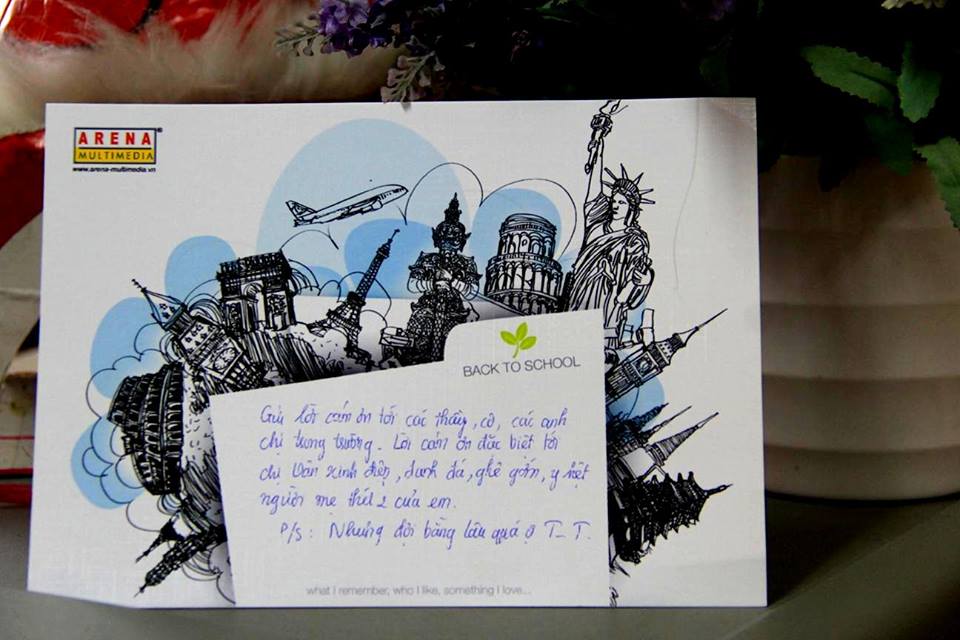 ARENA
MULTIMEDIA
www.arena-multimedia.vn
BACK TO SCHOOL
Gửi lời cảm ơn tới các thầy, cô, các anh
chị trong trường. Lời cảm ơn đặc biệt tới
chị Vân xinh điệp, danh đá, ghê gớm, y hệt
người mẹ thứ 2 của em.
P/s: Nhưng đợi bằng lâu quá ợ T_T.
what I remember, who I like, something I love...